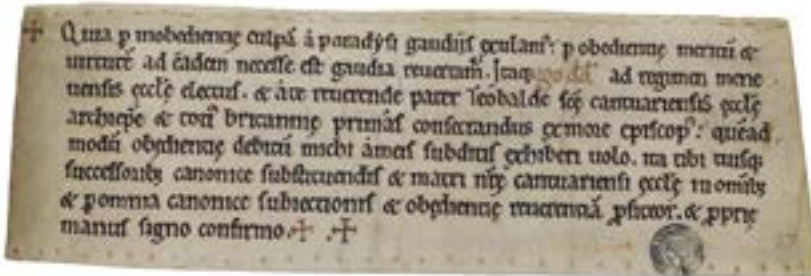 ✢ Quia p inobedientię culpā á paradẏsi gaudijs exulam᷒: p obedientię meritū &
uirtutē ad eadem necesse est gaudia reuertam᷒. Itaq; ego dd᷒ ad regimen mene
uensis ęcclę electus. & á te reuerende pater Teobalde scę cantuariensis ęcclę
archiepę & toti᷒ britannię primás consecrandus gemore episcop᷒: quēad
modū obędientię debitā michi ámeis subditis exhiberi uolo. ita tibi tuisq;
successorib; canonice substituendis & matri nrę cantuariensi ęcclę in omīb;
& p omnia canonice subiectionis & obędientię reuerentiā pfiteor. & pprię
manus signo confirmo. ✢ . ✢